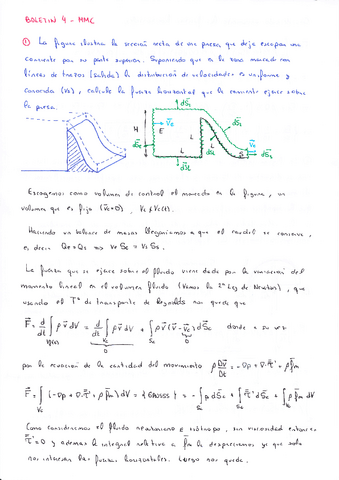 BOLETÍN 4 - MMC
① La figura ilustra la sección recta de una presa que deja escapar una
corriente por su parte superior. Suponiendo que en la zona marcada con
líneas de trazos (salida) la distribución de velocidades es uniforme y
conocida (Vs), calcula la fuerza horizontal que la corriente ejerce sobre
la presa.
dS̄t
H
E
V̄e
dS̄e
L
L
dS̄t
dS̄L
L
S
V̄s
dS̄s
Escogemos como volumen de control el marcado en la figura, un
volumen que es fijo (v̄c=0), Vc≠Vc(t).
Haciendo un balance de masas llegaríamos a que el caudal se conserva,
es decir Qe=Qs → Ve Se = Vs Ss.
La fuerza que se ejerce sobre el fluido viene dada por la variación del
momento lineal en el volumen fluido (Vamos la 2ª Ley de Newton), que
usando el Tª de transporte de Reynolds nos queda que
F̄ = d/dt ∫ ρ v̄ dV = d/dt ∫ ρ v̄ dV + ∫ ρ v̄ (v̄ - v̄c) dS̄c donde a su vez
Vf(t) Vc Sc 0
0
por la ecuación de la cantidad del movimiento ρ Dv̄/Dt = -∇p + ∇·τ̄' + ρ f̄m
F̄ = ∫ (-∇p + ∇·τ̄' + ρ f̄m) dV = {GAUSS} = -∫ p dS̄c + ∫ τ̄' dS̄c + ∫ ρ f̄m dV
Vc Sc Sc Vc
Como consideramos el fluido newtoniano e isótropo, sin viscosidad entonces
τ̄'=0 y además la integral relativa a f̄m la despreciamos ya que solo
nos interesan las fuerzas horizontales. Luego nos queda.